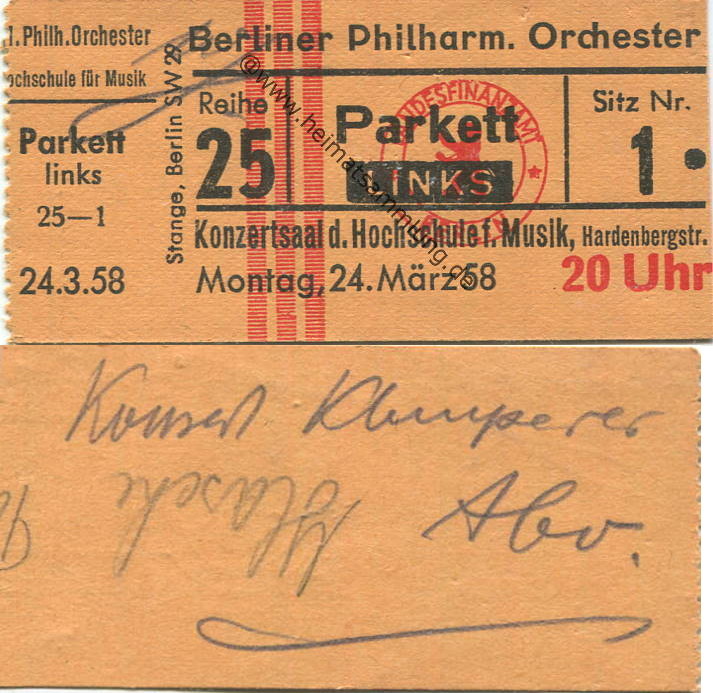 1. Philh. Orchester
ochschule für Musik
Parkett
links
25—1
24.3.58
Stange, Berlin SW 29
Berliner Philharm. Orchester
Reihe
25
Parkett
LINKS
Sitz Nr.
1
Konzertsaal d. Hochschule f. Musik, Hardenbergstr.
Montag, 24. März 58
20 Uhr
@www.heimatsammlung.de
Konzert Klemperer
Abo.